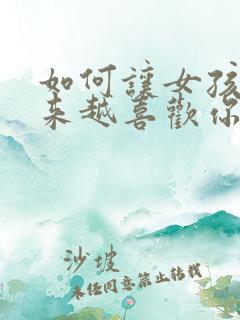 如何讓女孩
來越喜歡你
沙坡
未经同意禁止转载